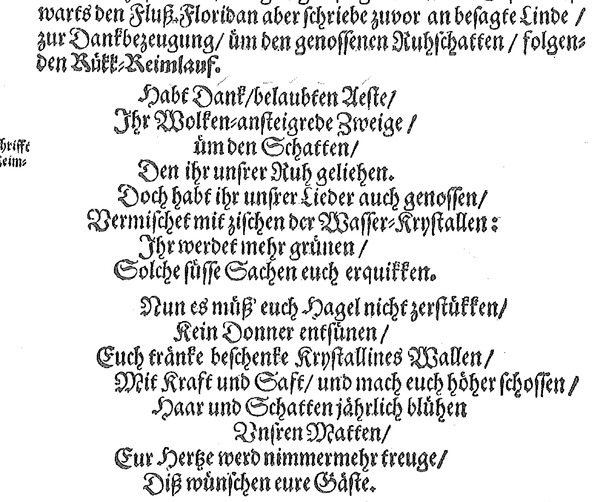 warts den Fluß. Floridan aber schriebe zuvor an besagte Linde /
zur Dankbezeugung/ üm den genossenen Ruhschatten / folgen-
den Rükk-Reimlauf.
Habt Dank/belaubten Aeste/
Ihr Wolken-ansteigrede Zweige /
üm den Schatten/
hrifft
Den ihr unsrer Ruh geliehen.
eim-
Doch habt ihr unsrer Lieder auch genossen/
Vermischet mit zischen der Wasser-Krystallen:
Ihr werdet mehr grünen /
Solche süsse Sachen euch erquikken.
Nun es müß' euch Hagel nicht zerstükken/
Kein Donner entsünen /
Euch tränke beschenke Krystallines Wallen/
Mit Kraft und Saft/ und mach euch höher schossen /
Haar und Schatten jährlich blühen
Vnsren Matten/
Eur Hertze werd nimmermehr treuge/
Diß wünschen eure Gäste.